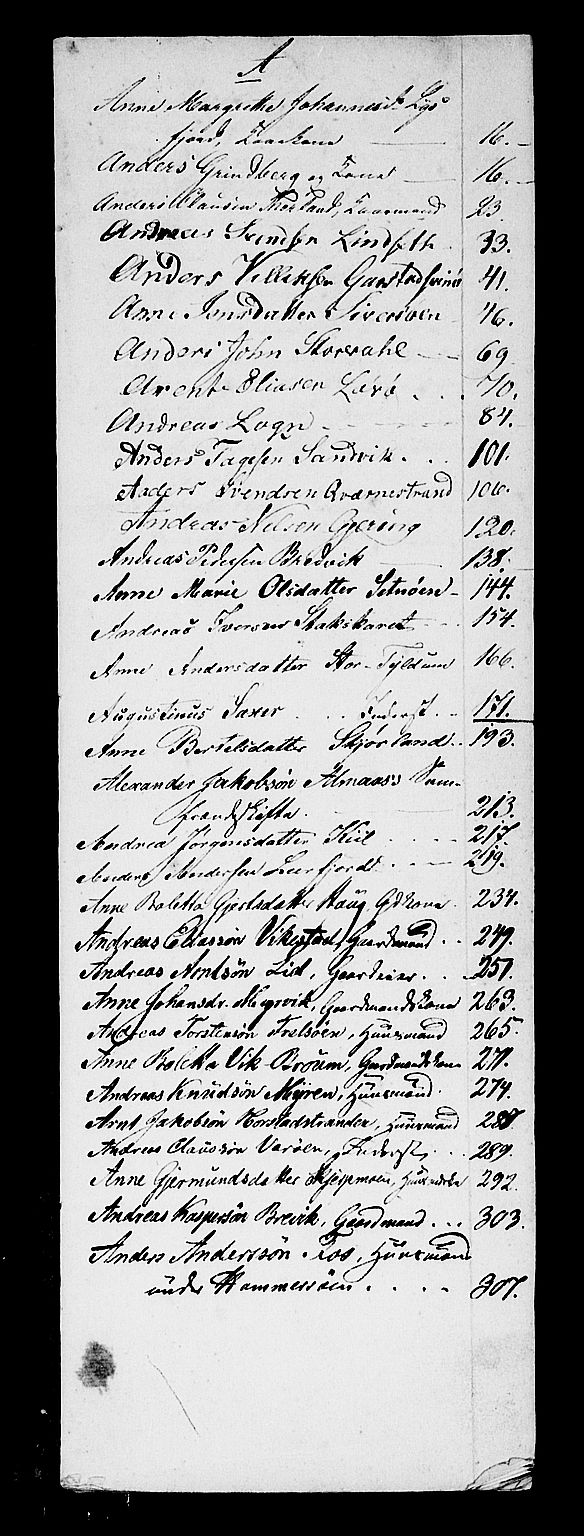 A
Anne Margrethe Johannesdr. Lys
fjord, Kaarkone 16.
Anders Grindberg og Kone 16.
Anders Clausen Kaarmand 23
Andreas Svendsen Lindseth 33.
Anders Villeksen 41.
Anne Jonsdatter Siversøen 46.
Anders John Storvahl 69
Arent Eliasen Lavø 70.
Andreas Logn 84.
Anders Tagesen Sandvik 101.
Anders Svendsen Qvarnestrand 106.
Andreas Nilsen Gjering 120.
Andreas Pedersen Bredvik 138.
Anne Marie Olsdatter Setnøen 144.
Andreas Iversen Stokskaret 154.
Anne Andersdatter Stor-Fyldum 166.
Augustinus Saxer Inderst 171.
Anne Bertelsdatter Skjørland 193.
Alexander Jakobsøn Almaas's Sam-
frændeskifte 213.
Andrea Jørgensdatter Kiil 217.
Anders Andersen Leerfjord 219.
Anne Boletta Gjertsdatter Haug, Gdkone 234.
Andreas Eliassøn Vikestad, Gaardmand 249.
Andreas Arntsøn Lid, Gaardeier 251.
Anne Johansdr. Myrvik, Gaardmandskone 263.
Andreas Torstensøn Trelsøen, Huusmand 265.
Anne Boletta Vik Brøum, Gaardmandskone 271.
Andreas Knudsøn Myren, Huusmand 274.
Arnt Jakobsøn Horstadstranden, Huusmand 287
Andreas Claussøn Varøen, Inderst 289.
Anne Gjermundsdatter 292.
Andreas Kaspersøn Brevik, Gaardmand 303.
Anders Anderssøn Ros, Huusmand
under Hommersøen 307.